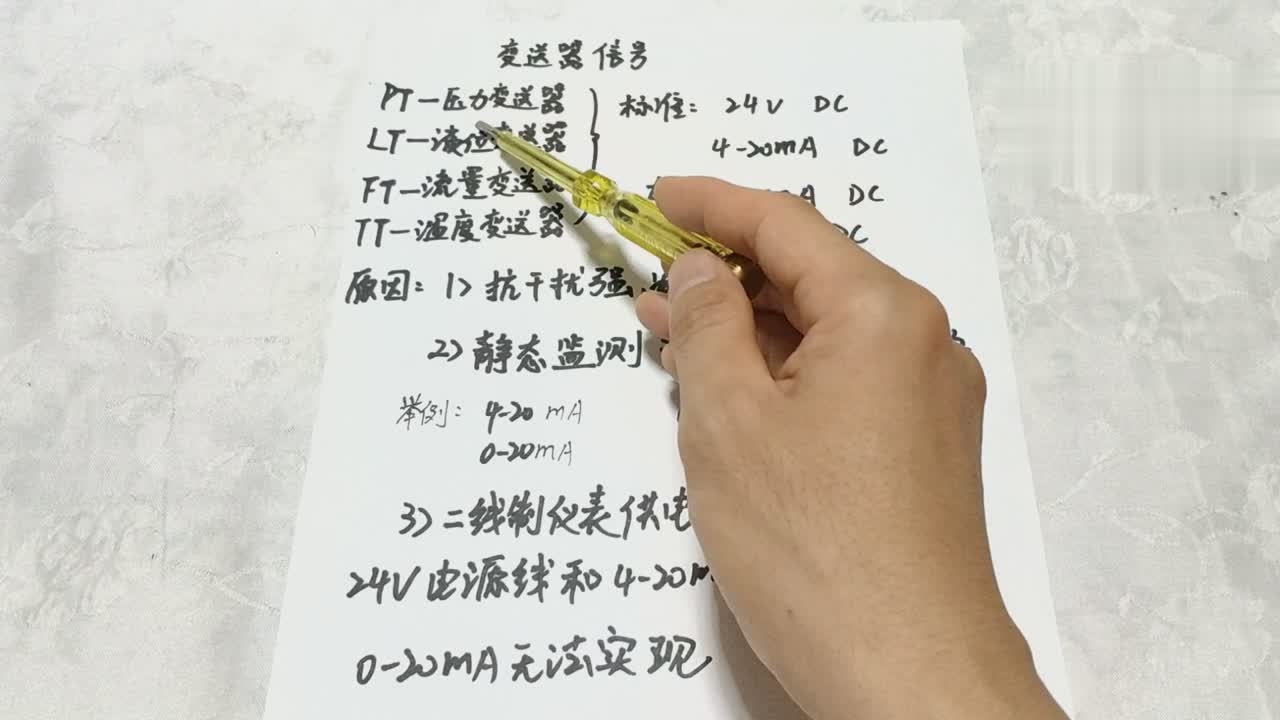 变送器信号
PT—压力变送器
标准: 24V DC
4-20mA DC
LT—液位变送器
FT—流量变送器
A DC
TT—温度变送器
DC
原因: 1> 抗干扰强
2> 静态监测
举例: 4-20 mA
0-20mA
3> 二线制仪表供电
24V电源线和 4-20m
0-20mA无法实现